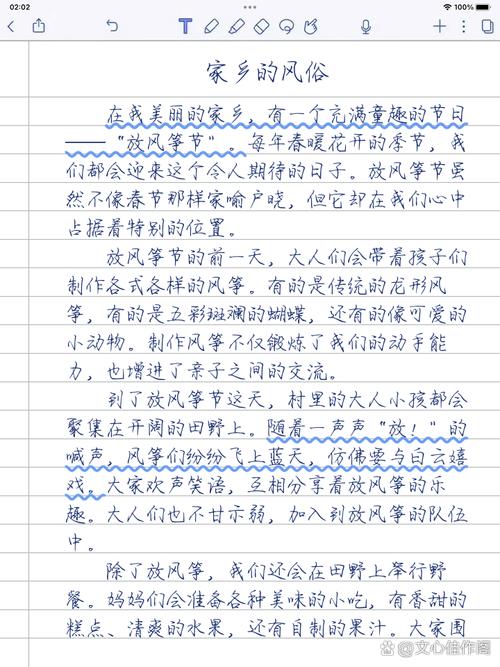 02:02
100%
T
家乡的风俗
在我美丽的家乡，有一个充满童趣的节日
——“放风筝节”。每年春暖花开的季节，我
们都会迎来这个令人期待的日子。放风筝节虽
然不像春节那样家喻户晓，但它却在我们心中
占据着特别的位置。
放风筝节的前一天，大人们会带着孩子们
制作各式各样的风筝。有的是传统的龙形风
筝，有的是五彩斑斓的蝴蝶，还有的像可爱的
小动物。制作风筝不仅锻炼了我们的动手能
力，也增进了亲子之间的交流。
到了放风筝节这天，村里的大人小孩都会
聚集在开阔的田野上。随着一声声“放！”的
喊声，风筝们纷纷飞上蓝天，仿佛要与白云嬉
戏。大家欢声笑语，互相分享着放风筝的乐
趣。大人们也不甘示弱，加入到放风筝的队伍
中。
除了放风筝，我们还会在田野上举行野
餐。妈妈们会准备各种美味的小吃，有香甜的
糕点、清爽的水果，还有自制的果汁。大家围
@文心佳作阁